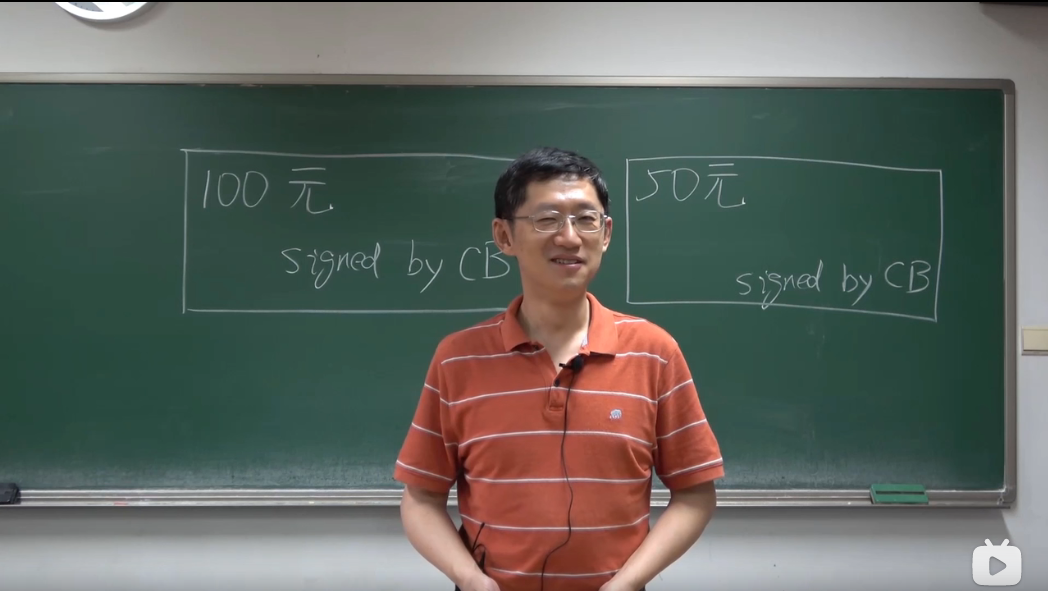 100 元
signed by CB
50元
signed by CB